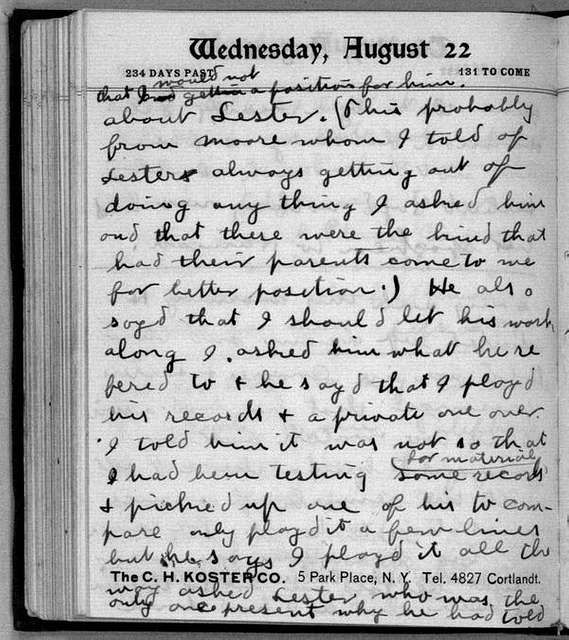 Wednesday, August 22
234 DAYS PAST
131 TO COME
would not
that I get a position for him.
about Lester. (This probably
from Moore whom I told of
Lesters always getting out of
doing any thing I asked him
and that there were the kind that
had their parents come to me
for better position.) He also
sayd that I should let his work
along I asked him what he re
fered to + he sayd that I playd
his records + a private one over.
I told him it was not so that
for material
I had been testing some records
+ picked up one of his to com-
pare only playd it a few lines
but he says I playd it all the
The C. H. KOSTER CO. 5 Park Place, N. Y. Tel. 4827 Cortlandt.
way asked Lester who was the
only one present why he had told